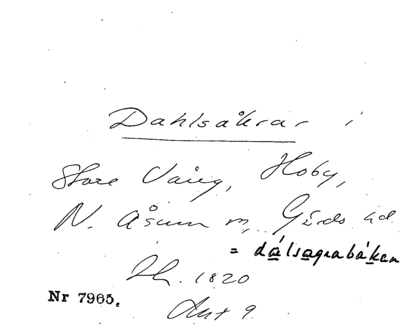 Dahlsåkrar i
Store Vång, Hoby,
N. Åsum m, Gärds hd.
= dálsagrabákan
Lh. 1820
Akt 9.
Nr 7965.